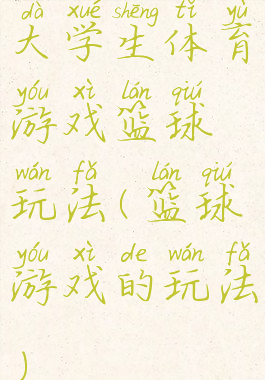 dà xué shēng tǐ yù
大学生体育
yóu xì lán qiú
游戏篮球
wán fǎ lán qiú
玩法(篮球
yóu xì de wán fǎ
游戏的玩法
)